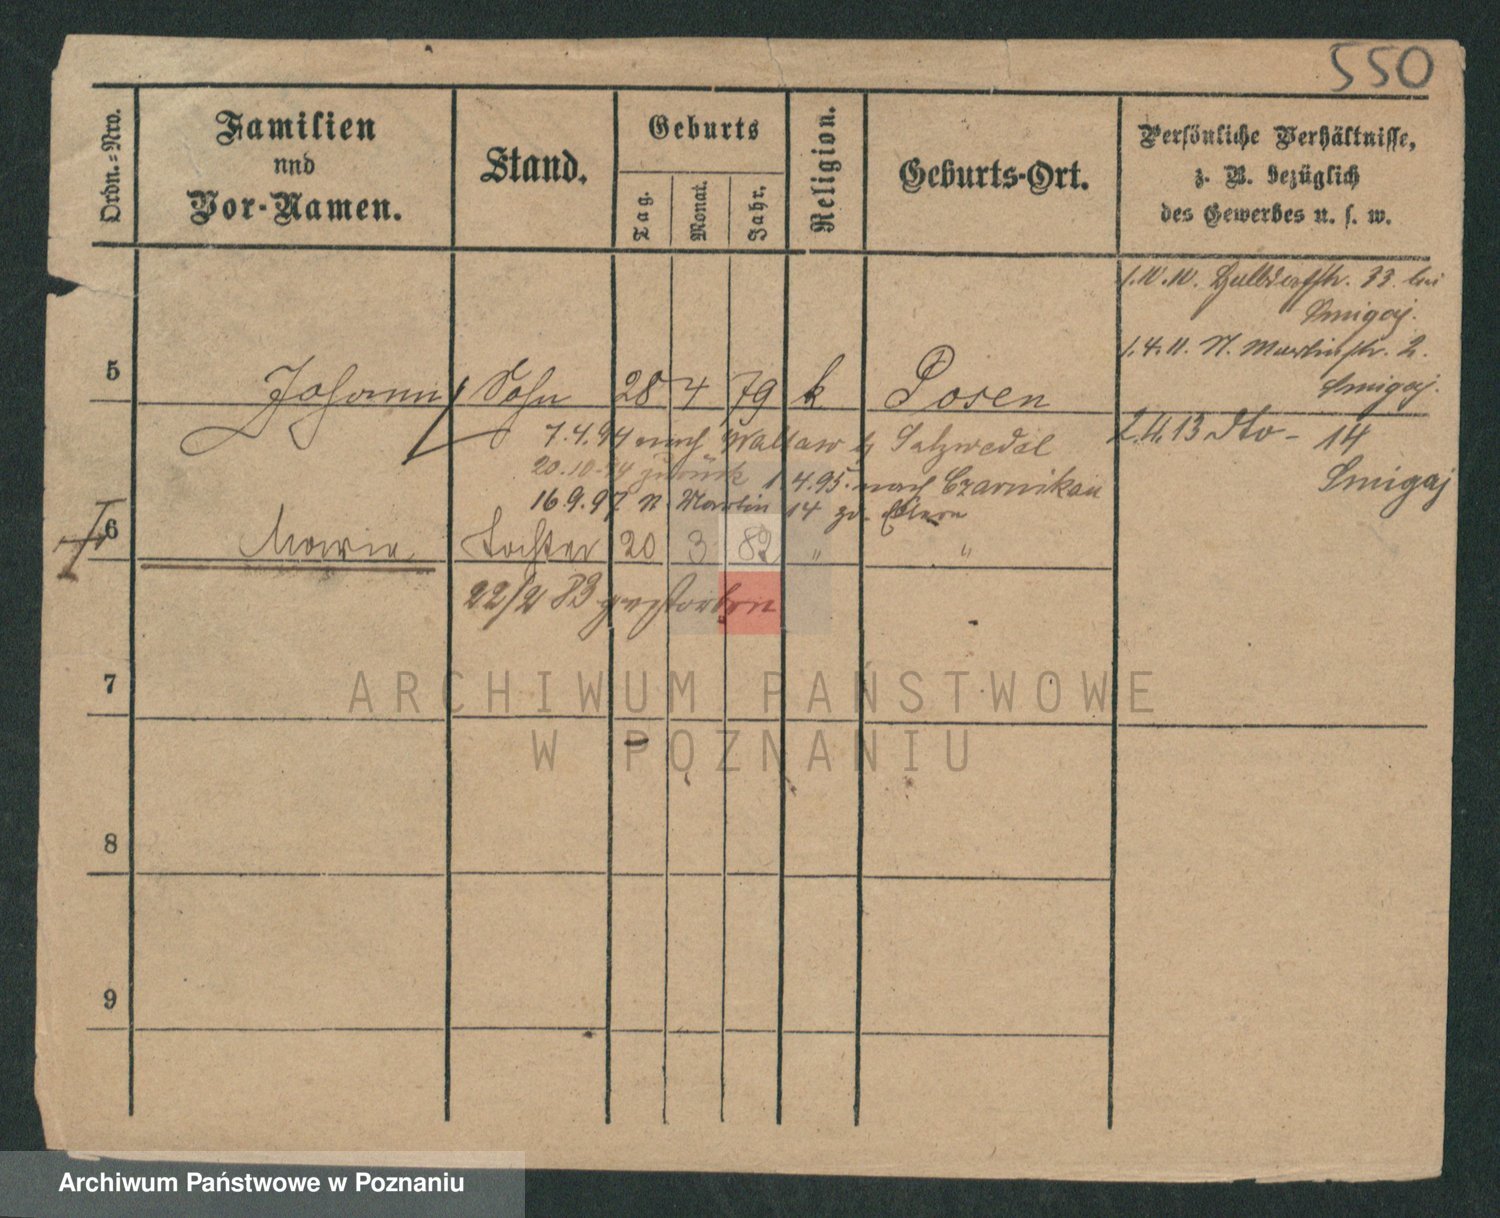 550
Ordn.=Nro.
Familien
und
Vor-Namen.
Stand.
Geburts
Tag.
Monat.
Jahr.
Religion.
Geburts-Ort.
Persönliche Verhältnisse,
z. B. bezüglich
des Gewerbes u. s. w.
1.10.10. 33. bei
Smigaj.
1.4.11. N. Martinstr. 2.
Smigaj.
5 Johann Sohn 28 4 79 k Posen
7.4.94 nach Wallaw b/ Salzwedel
2.4.13 dto - 14
Smigaj
20.10.94 zurück 1 4.95. nach Czarnikau
16.9.97 N. Martin 14 zu Eltern
6 Maria Tochter 20 3 82 " "
22/2 83 gestorben
7
ARCHIWUM PAŃSTWOWE
W POZNANIU
8
9
Archiwum Państwowe w Poznaniu